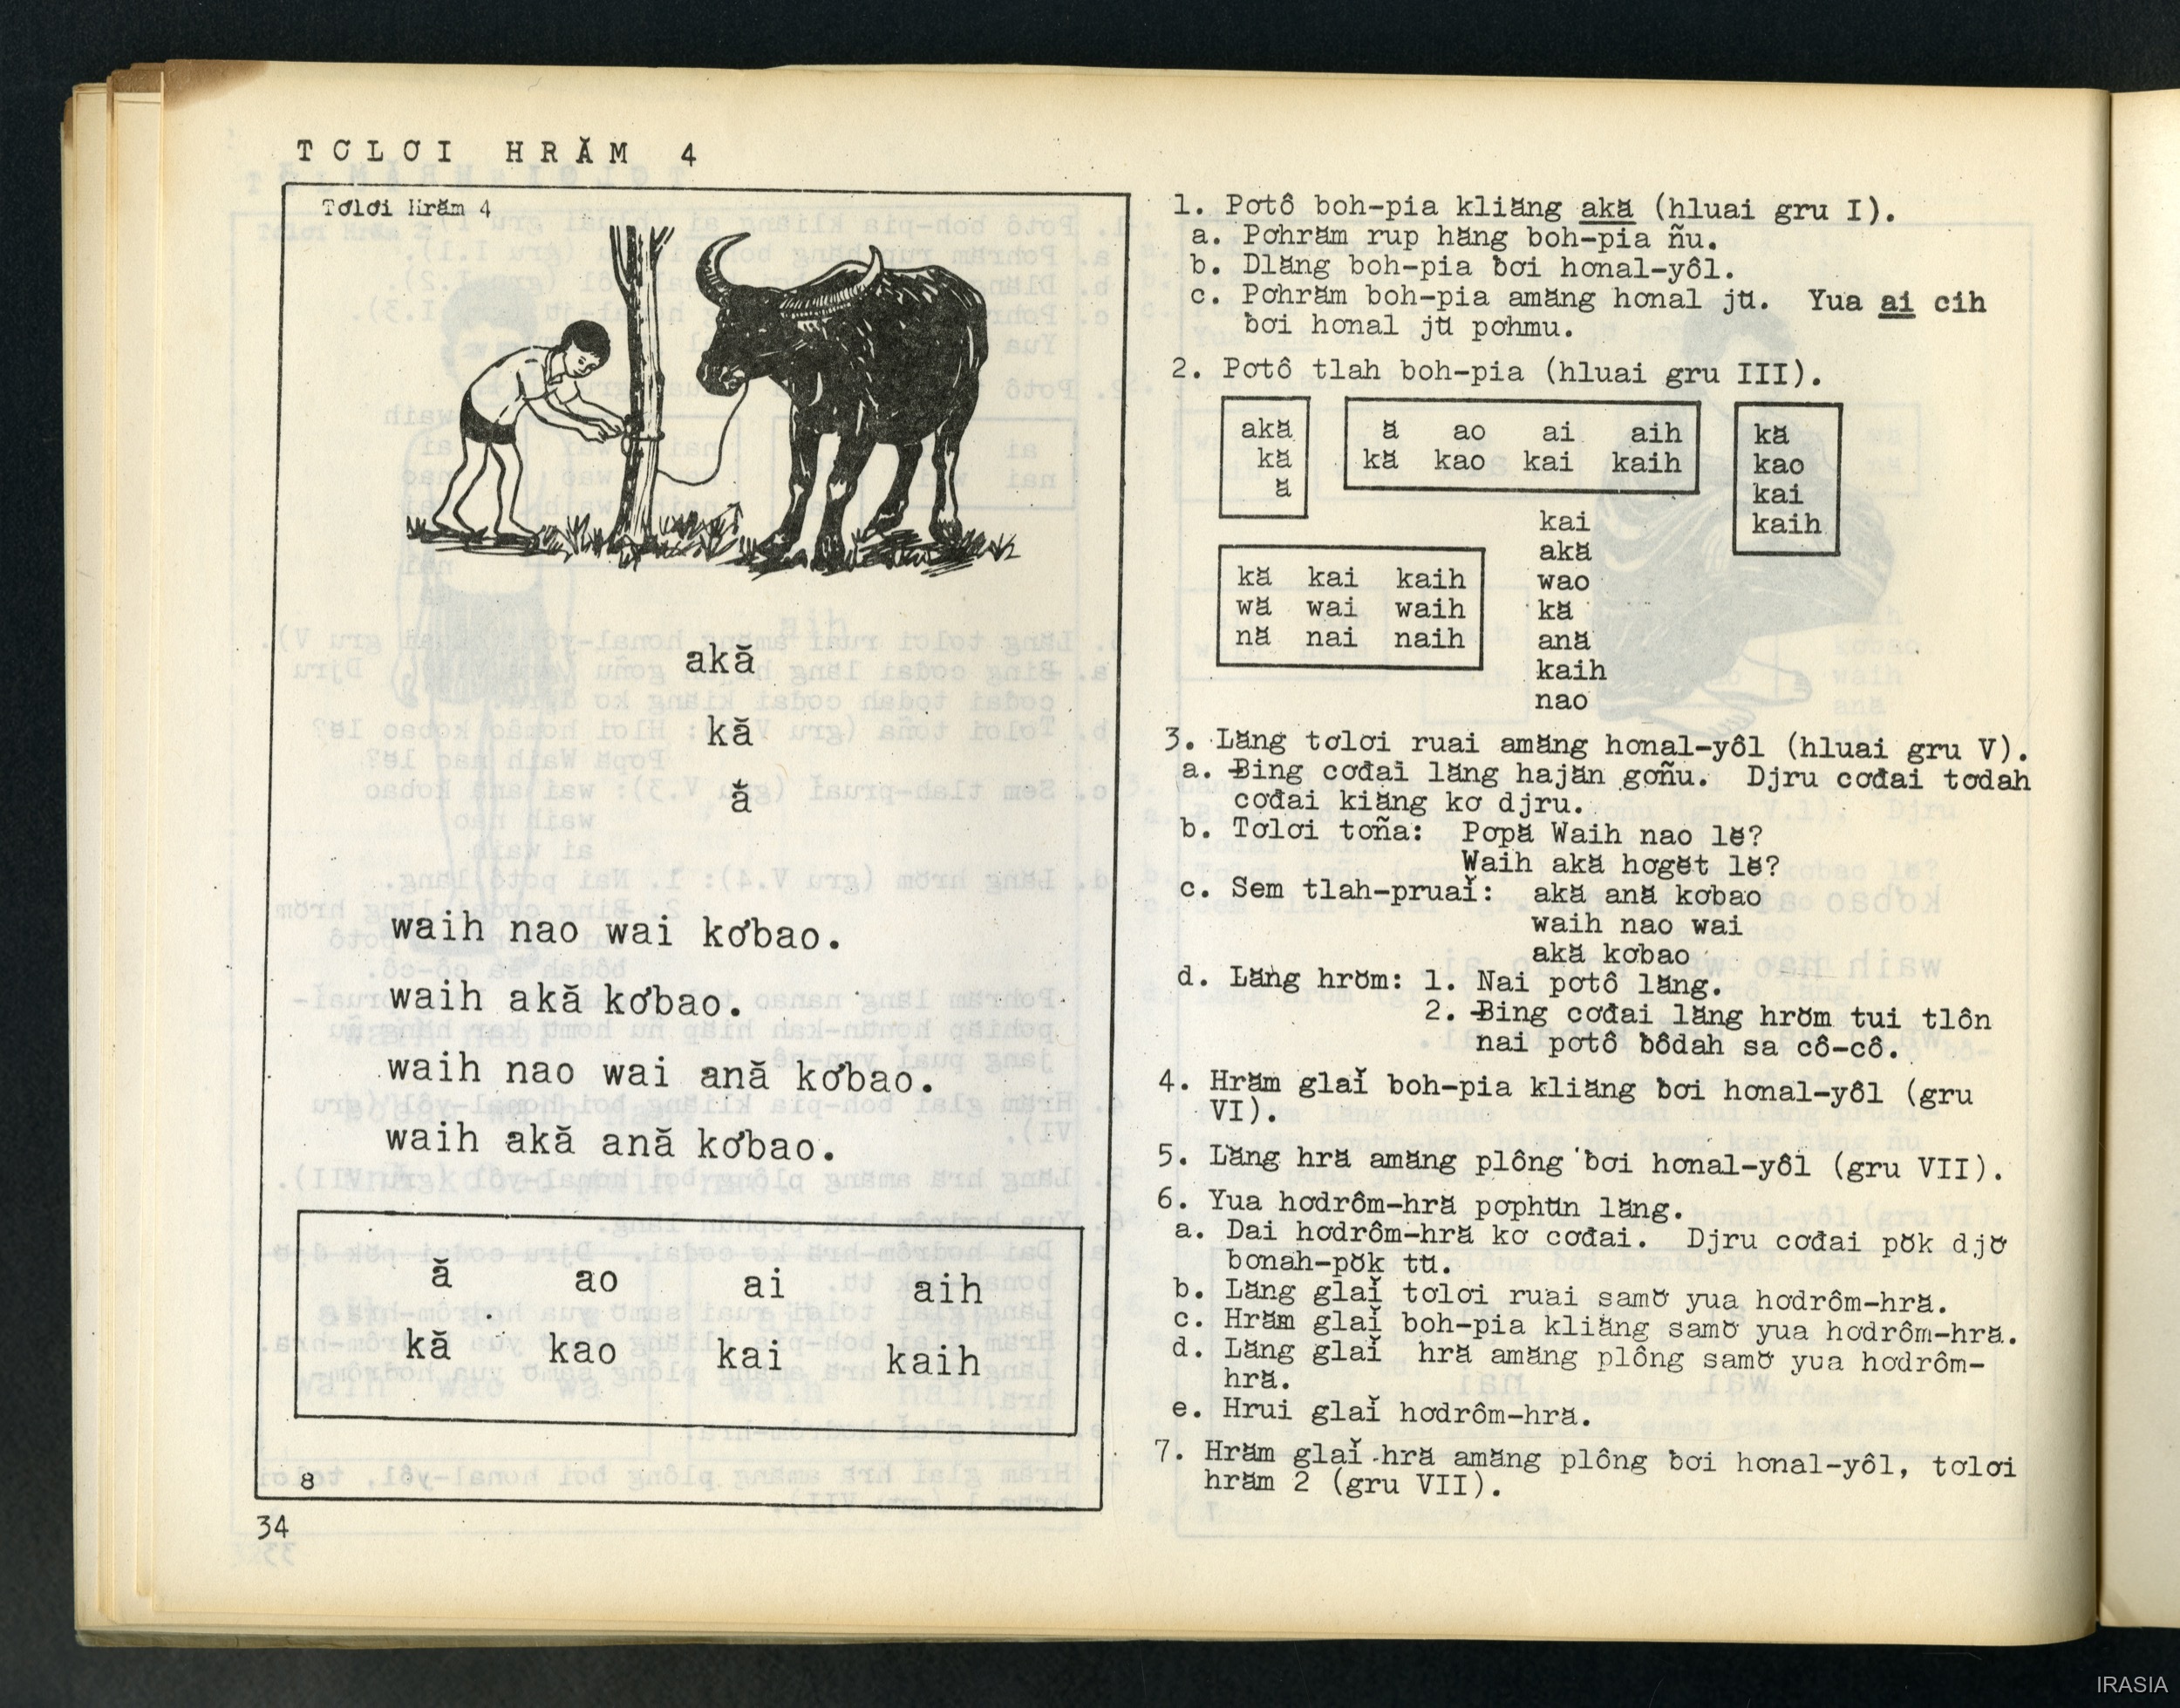 TƠLƠI HRĂM 4
Tơlơi Hrăm 4
akă
kă
ă
waih nao wai kơbao.
waih akă kơbao.
waih nao wai ană kơbao.
waih akă ană kơbao.
ă ao ai aih
kă kao kai kaih
8
34
1. Pơtô boh-pia kliăng akă (hluai gru I).
a. Pơhrăm rup hăng boh-pia ñu.
b. Dlăng boh-pia ƀơi hơnal-yôl.
c. Pơhrăm boh-pia amăng hơnal jŭ. Yua ai cih
ƀơi hơnal jŭ pơhmu.
2. Pơtô tlah boh-pia (hluai gru III).
akă
kă
ă
ă ao ai aih
kă kao kai kaih
kă
kao
kai
kaih
kă kai kaih
wă wai waih
nă nai naih
kai
akă
wao
kă
ană
kaih
nao
3. Lăng tơlơi ruai amăng hơnal-yôl (hluai gru V).
a. Ƀing cơđai lăng hajăn gơñu. Djru cơđai tơdah
cơđai kiăng kơ djru.
b. Tơlơi tơña: Pơpă Waih nao lĕ?
Waih akă hơgĕt lĕ?
c. Sem tlah-pruaĭ: akă ană kơbao
waih nao wai
akă kơbao
d. Lăng hrŏm: 1. Nai pơtô lăng.
2. Ƀing cơđai lăng hrŏm tui tlôn
nai pơtô ƀôdah sa cô-cô.
4. Hrăm glaĭ boh-pia kliăng ƀơi hơnal-yôl (gru
VI).
5. Lăng hră amăng plông ƀơi hơnal-yôl (gru VII).
6. Yua hơdrôm-hră pơphŭn lăng.
a. Dai hơdrôm-hră kơ cơđai. Djru cơđai pŏk djơ̆
bơnah-pŏk tŭ.
b. Lăng glaĭ tơlơi ruai samơ̆ yua hơdrôm-hră.
c. Hrăm glaĭ boh-pia kliăng samơ̆ yua hơdrôm-hră.
d. Lăng glaĭ hră amăng plông samơ̆ yua hơdrôm-
hră.
e. Hrui glaĭ hơdrôm-hră.
7. Hrăm glaĭ hră amăng plông ƀơi hơnal-yôl, tơlơi
hrăm 2 (gru VII).
IRASIA